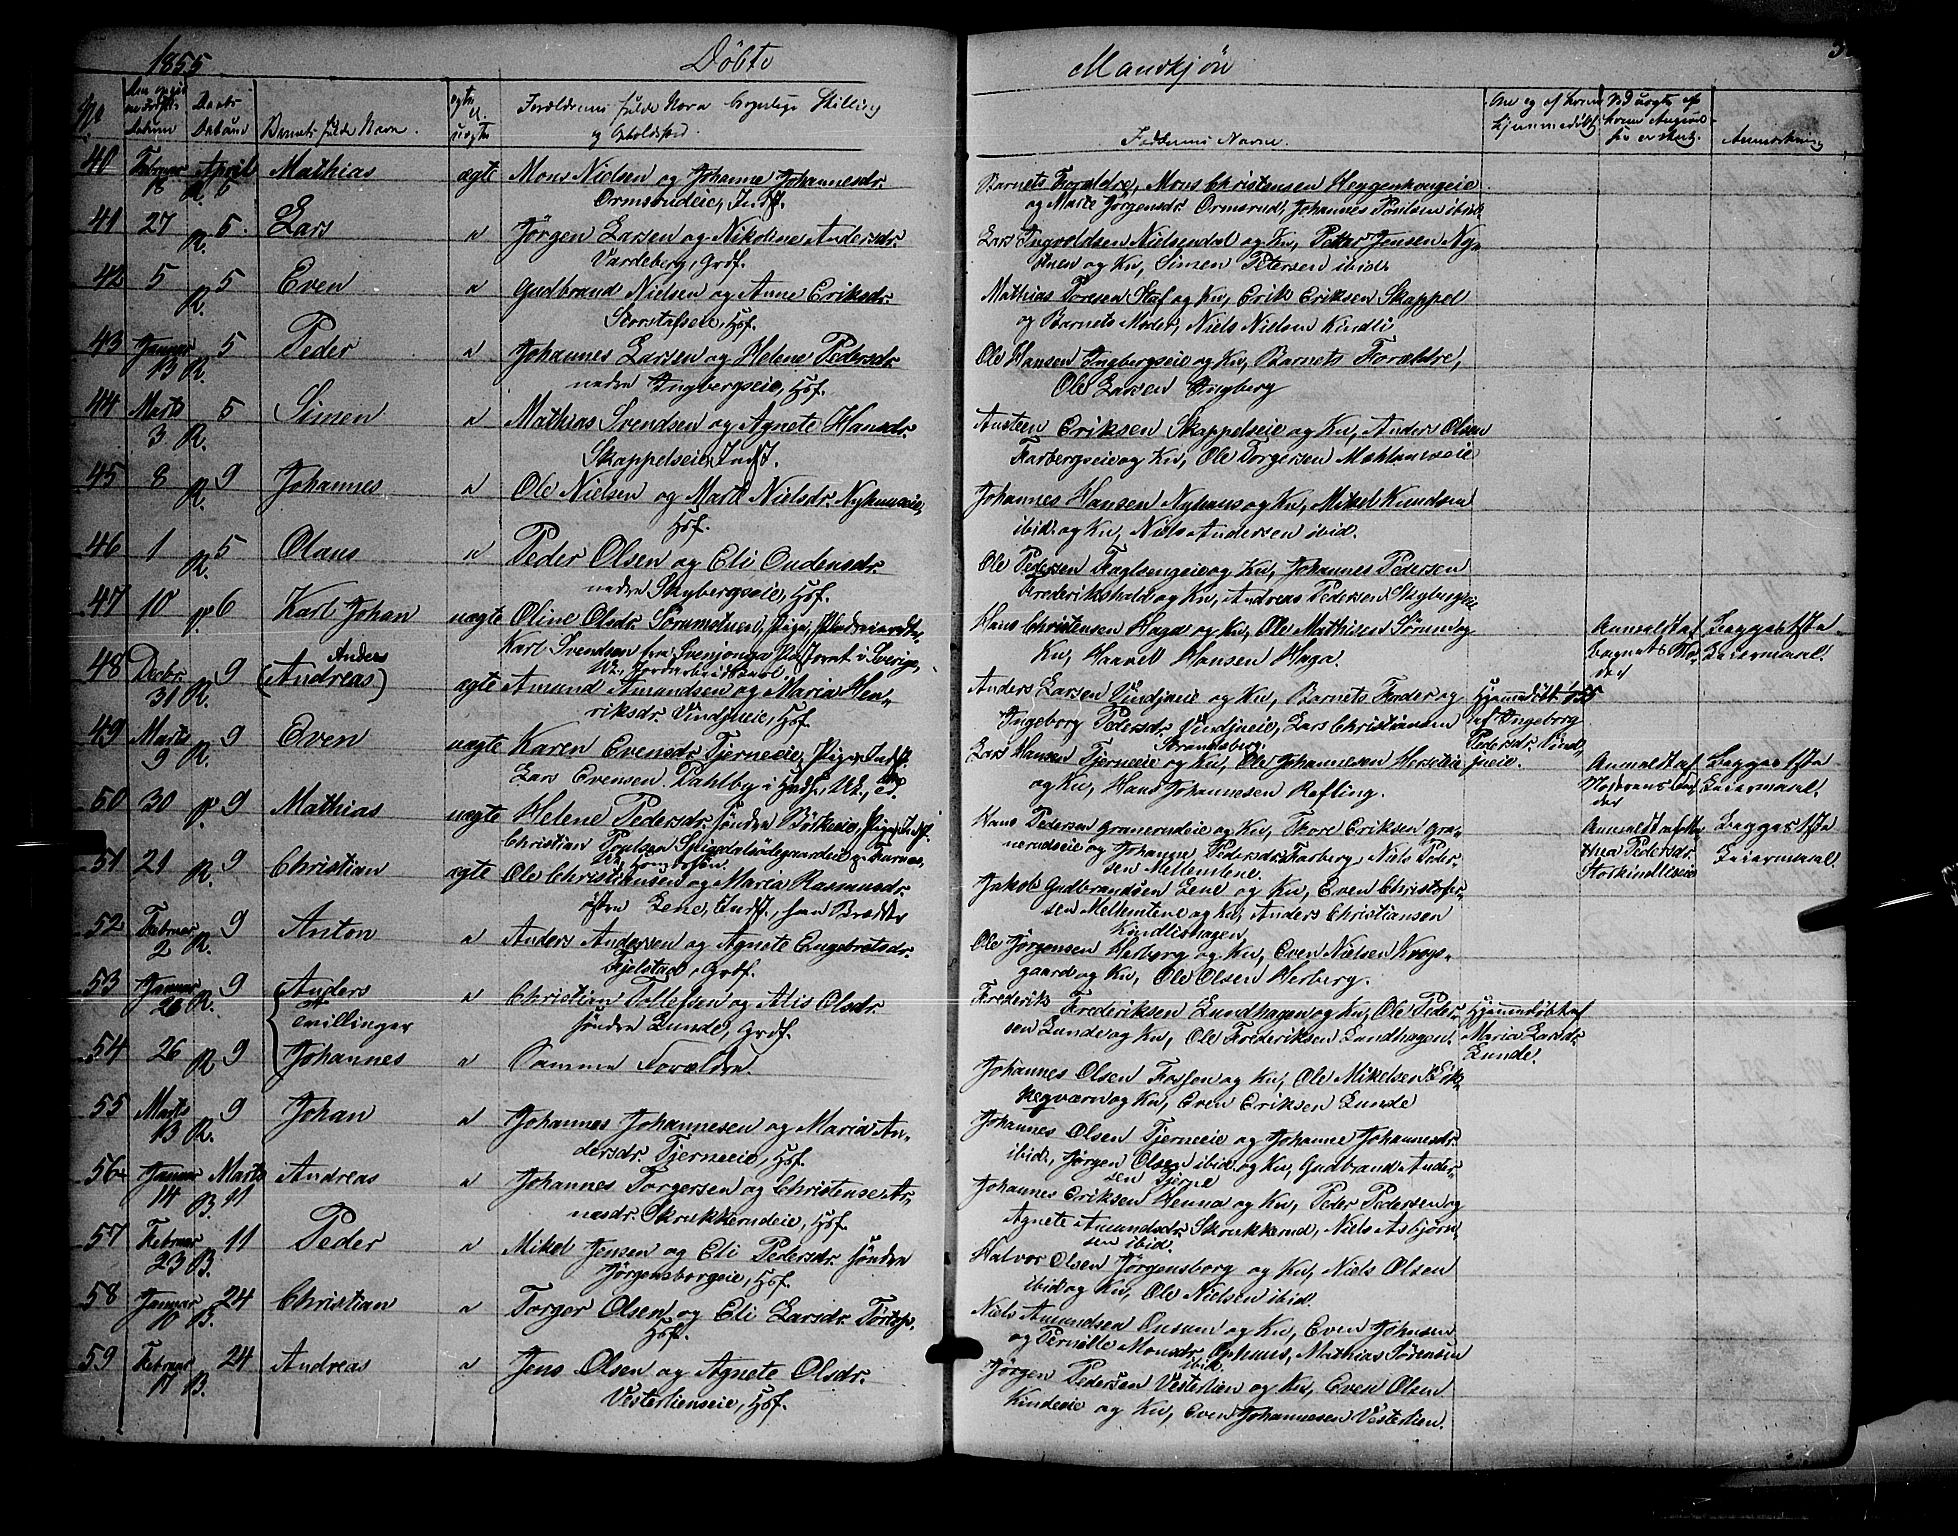 1855 Döbte Mandkjön
No
Daabs Datum
Barnets fulde Navn
ægte el. uægte
Forældrenes fulde Navn Borgerlige Stilling
og Opholdssted
Faddernes Navne
Anmærkning
40 Februar 18 April R. 6 Mathias ægte Mons Nielsen og Johanne Johannesdr.
Ormsrudeie, Indst.
Barnets Forældre, Mons Christensen Heggenhougeie
og Marte Jörgensdr. Ormsrud, Johannes Poulsen ibid.
41 27 R. 5 Lars " Jörgen Larsen og Nikoline Andersdr.
Vardeberg, Grdf.
Lars Ingvoldsen Nielsendal og Kn, Petter Jensen Ny-
stuen og Kn, Simen Petersen ibid.
42 5 R. 5 Even " Gudbrand Nielsen og Anne Eriksdr.
Storstafseie, Hsf.
Mathias Toresen Staf og Kn, Erik Eriksen Skappel
og Barnets Moder, Niels Nielsen Kindli
43 Januar 13 R. 5 Peder " Johannes Larsen og Helene Pedersdr.
nedre Ingbergseie, Hsf.
Ole Hansen Ingbergseie og Kn, Barnets Forældre,
Ole Larsen Ingberg
44 Marts 3 R. 5 Simen " Mathias Svendsen og Agnete Hansdr.
Skappelseie, Indst.
Austeen Eriksen Skappelseie og Kn, Anders Olsen
Farbergseie og Kn, Ole Torgersen
45 8 R. 9 Johannes " Ole Nielsen og Marte Nielsdr. Nyhuuseie,
Hsf.
Johannes Hansen Nyhuus og Kn, Mikel Knudsen
ibid. og Kn, Niels Andersen ibid.
46 1 R. 5 Olaus " Peder Olsen og Eli Oudensdr.
nedre Skybergseie, Hsf.
Ole Pedersen Fuglsengeie og Kn, Johannes Pedersen
Frederikshald og Kn, Andreas Pedersen Skybergseie
47 10 P. 6 Karl Johan uægte Oline Olsdr. Sörumstuen, Pige,
Karl Svendsen fra i Sverige,
Uk., Jordarbeidskarl.
Hans Christensen Haga og Kn, Ole Mathisen Sörum og
Kn, Haavel Hansen Haga.
Anmeldt af
Barnets Mo-
der
Begges 1ste
Leiermaal.
48 Decbr. 31 R. 9 Anders
(Andreas) ægte Amund Amundsen og Maria Hen-
riksdr. Vindjueie, Hsf
Anders Larsen Vindjueie og Kn, Barnets Fader og
Ingeborg Pedersdr. Vindjueie, Lars Christiansen
Strandsberg.
Hjemmedöbt
af Ingeborg
Pedersdr. Vind-
jueie.
49 Marts 9 R. 9 Even uægte Karen Evensdr. Tjerneeie, Pige, Indst.
Lars Evensen Dahlby i
Lars Hansen Tjerneeie og Kn, Ole Johannesen
og Kn, Hans Johannesen Refling.
Anmeldt af
Begges 1ste
Leiermaal.
50 30 P. 9 Mathias uægte Helene Pedersdr. söndre Böckeeie, Pige, Indst.
Christian Poulsen
Hans Pedersen Granerudeie og Kn, Tore Eriksen Gra-
nerudseie og Johanne Pedersdr. Farberg, Niels Peder-
sen Mellemlene.
Anmeldt af
Pedersdr.
Begges 1ste
Leiermaal
51 21 R. 9 Christian ægte Ole Christiansen og Maria Rasmusdr.
östre Lene, Indst.,
Jakob Gudbrandsen Lene og Kn, Even Christofer-
sen Mellemlene og Kn, Anders Christiansen
Kindlishagen
52 Februar 2 R. 9 Anton " Anders Andersen og Agnete Engebretsdr.
Kjelstad, Grdf.
Ole Jörgensen Herberg og Kn, Even Nielsen Krogs-
gaard og Kn, Ole Olsen Herberg.
53 Januar 26 R. 9 Anders
Tvillinger
" Christian Tollefsen og Alis Olsdr.
söndre Lunde, Grdf.
Frederik Frederiksen Lundhagen og Kn, Ole Peder-
sen Lunde og Kn, Ole Frederiksen Lundhagen.
Hjemmedöbt af
Maria Larsdr.
Lunde.
54 26 R. 9 Johannes " Samme Forældre
Johannes Olsen Fossen og Kn, Ole Mikelsen
og Kn, Even Eriksen Lunde
55 Marts 13 R. 9 Johan " Johannes Johannesen og Maria An-
dersdr. Tjerneeie, Hsf.
Johannes Olsen Tjerneeie og Johanne Johannesdr.
ibid., Jörgen Olsen ibid. og Kn, Gudbrand Ander-
sen Tjerne
56 Januar 14 Marts B. 11 Andreas " Johannes Torgersen og Christense Ar-
nesdr. Skrukkerudeie, Hsf.
Johannes Eriksen Henna og Kn, Peder Pedersen og
Agnete Amundsdr. Skrukkerud, Niels Asbjörn-
sen ibid.
57 Februar 23 B. 11 Peder " Mikel Jensen og Eli Pedersdr. söndre
Jörgensborgeie, Hsf.
Halvor Olsen Jörgensborg og Kn, Niels Olsen
ibid og Kn, Ole Nielsen ibid.
58 Januar 10 B. 24 Christian " Torger Olsen og Eli Larsdr. Törtop.
Hsf.
Niels Amundsen Onsum og Kn, Even Johnsen
og Pernille Monsdr. Ophuus, Mathias Sörensen
ibid.
59 Februar 17 B. 24 Andreas " Jens Olsen og Agnete Olsdr.
Vestertienseie, Hsf.
Jörgen Pedersen Vestertien og Kn, Even Olsen
Kindeeie og Kn, Even Johannesen Vestertien.